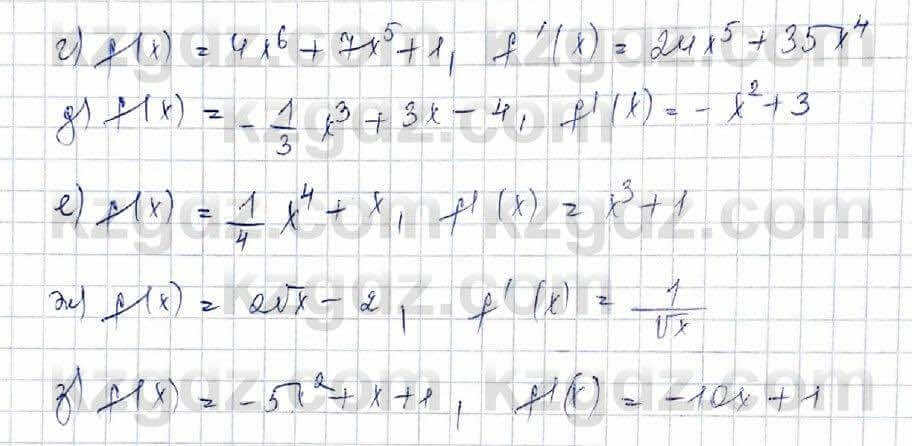 г) f(x) = 4x⁶ + 7x⁵ + 1, f'(x) = 24x⁵ + 35x⁴
д) f(x) = -1/3 x³ + 3x - 4, f'(x) = -x² + 3
е) f(x) = 1/4 x⁴ + x, f'(x) = x³ + 1
ж) f(x) = 2√x - 2, f'(x) = 1/√x
з) f(x) = -5x² + x + 1, f'(x) = -10x + 1
kzgdz.com
kzgdz.com
kzgdz.com
kzgdz.com
kzgdz.com